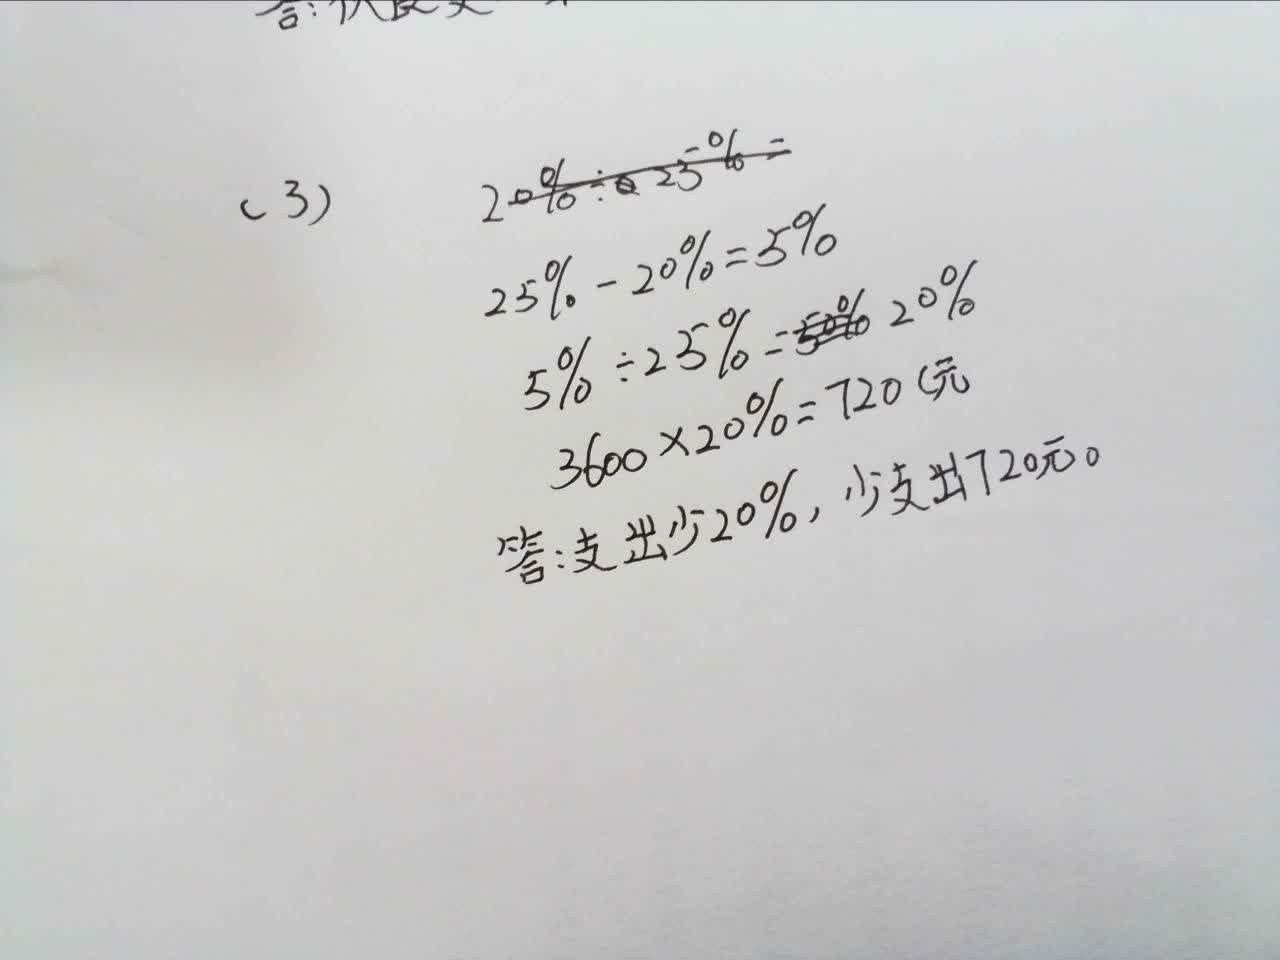 答:伙食支
(3) 20%÷25%=
25%-20%=5%
5%÷25%=20%
3600×20%=720(元
答:支出少20%,少支出720元。